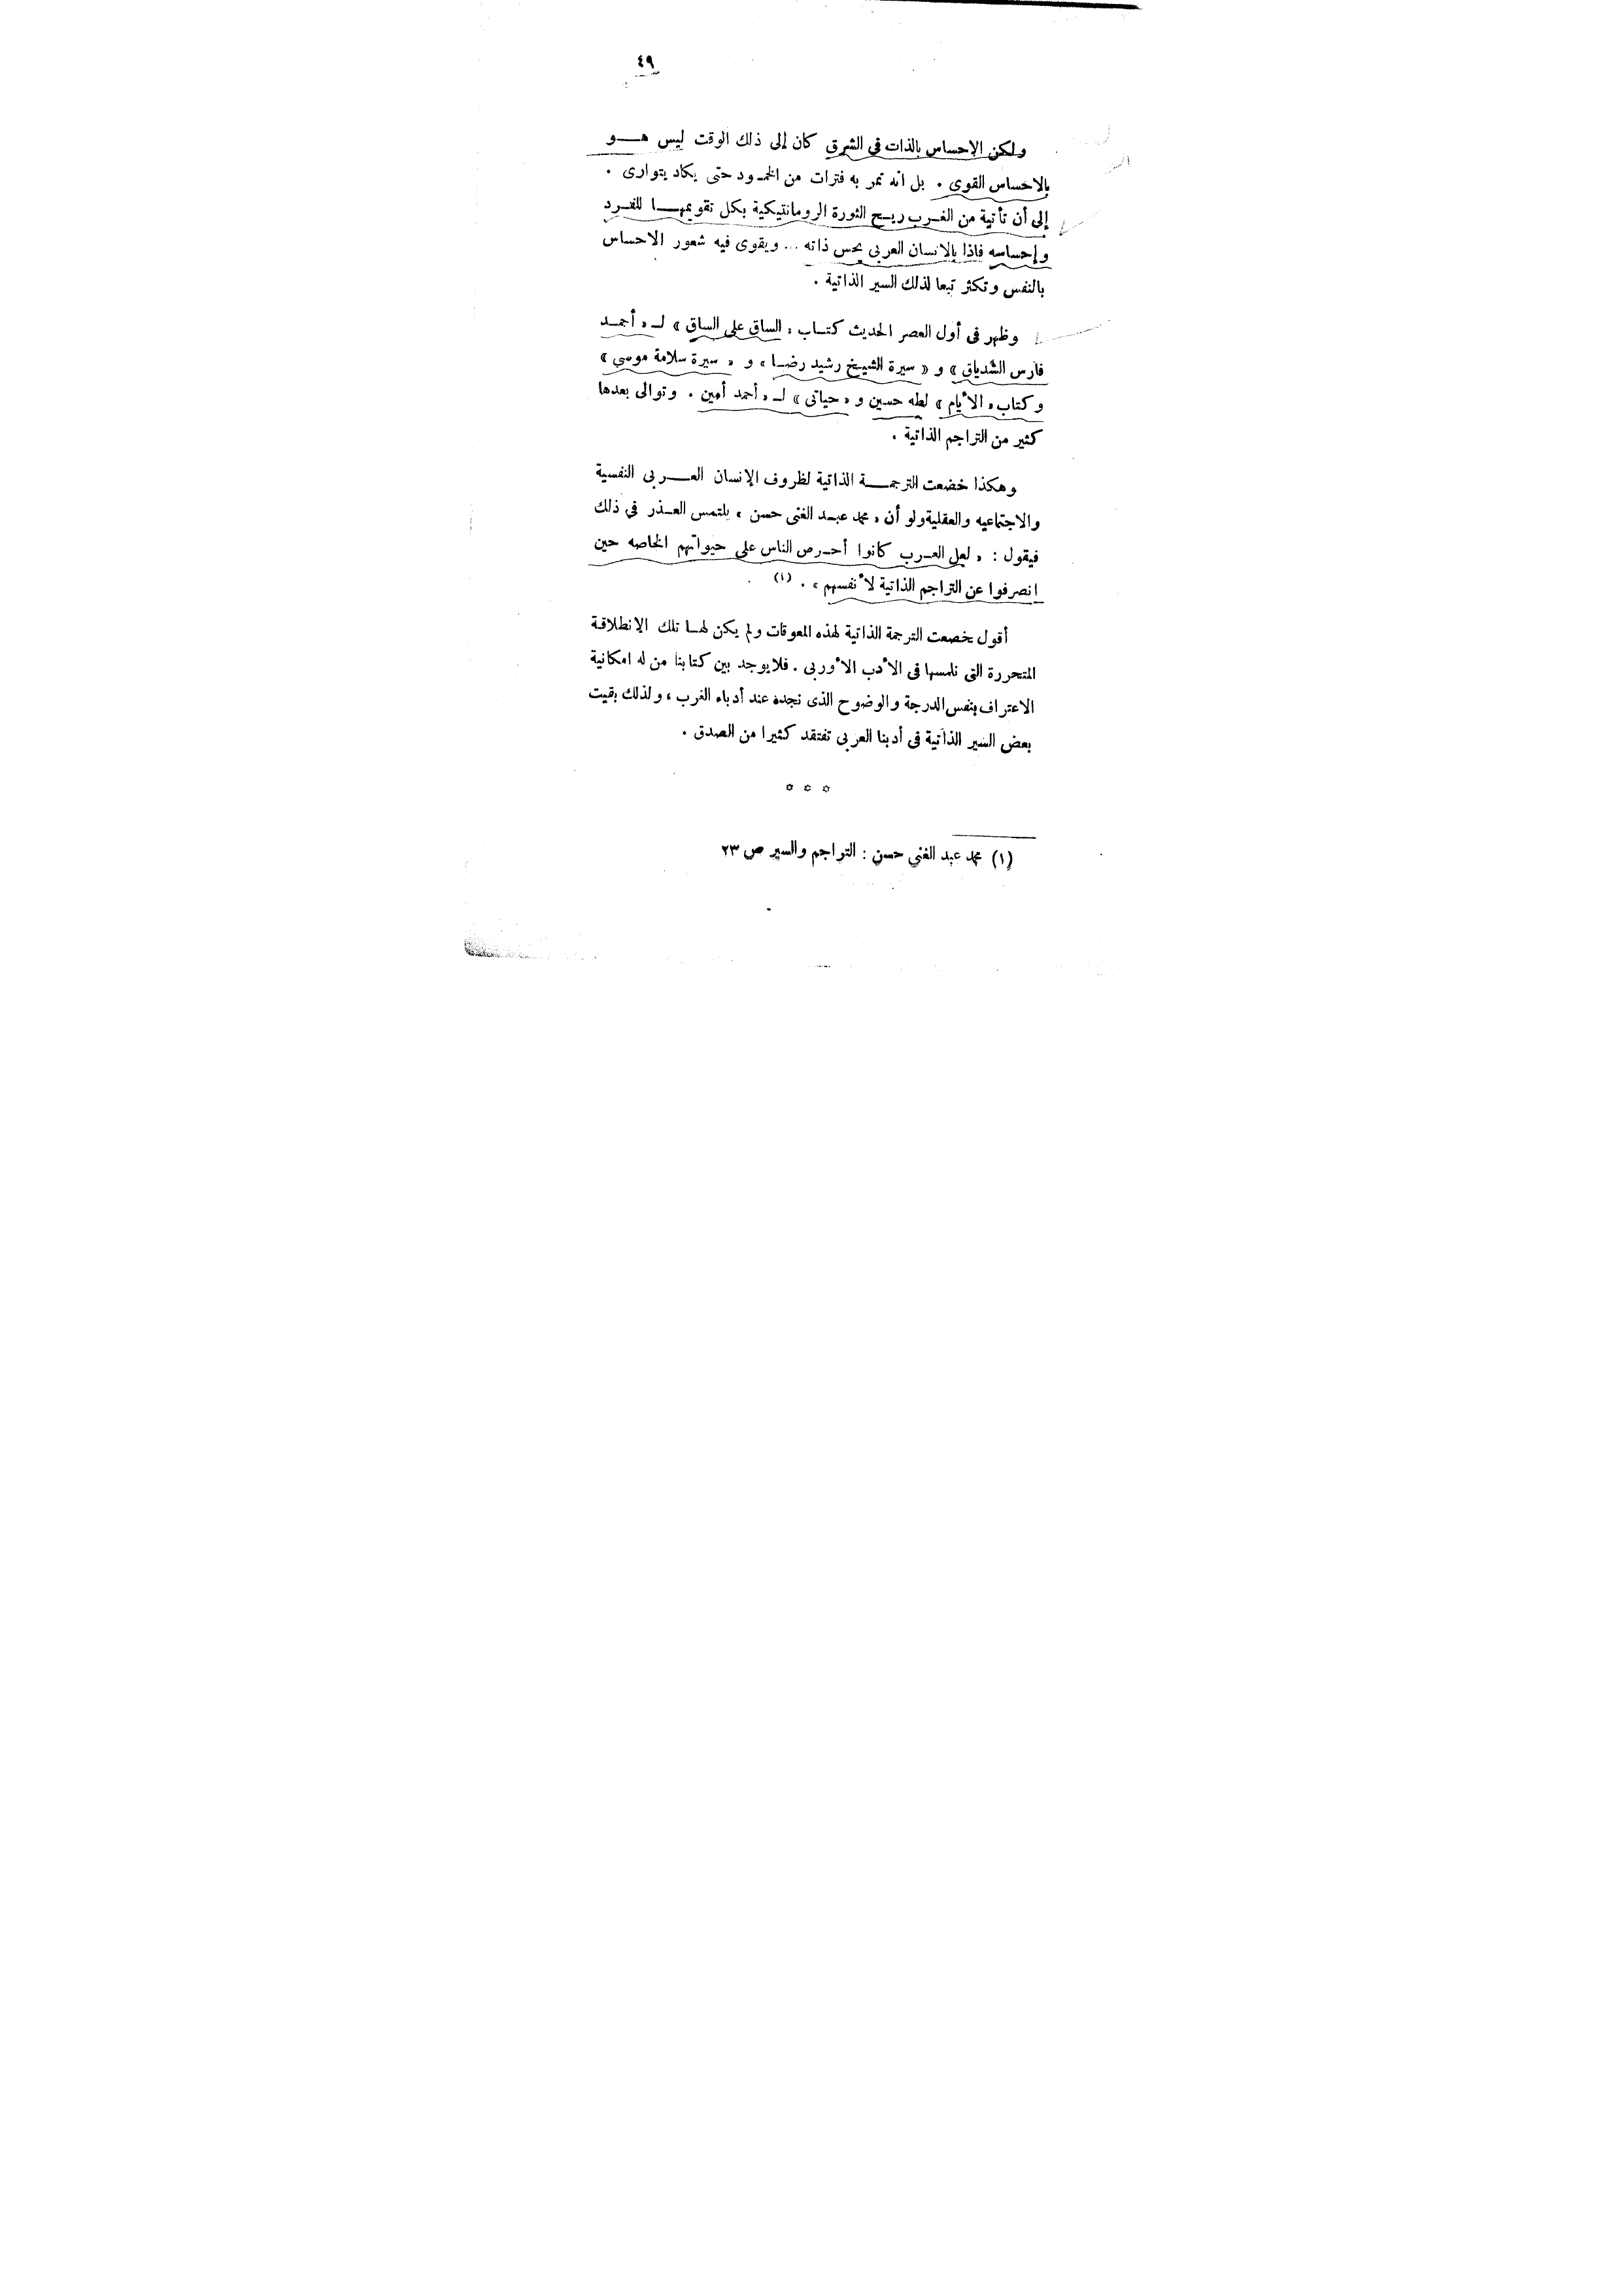 ٤٩
ولكن الإحساس بالذات في الشرق كان إلى ذلك الوقت ليس هـــو
بالاحساس القوى . بل انه تمر به فترات من الخمود حتى يكاد يتوارى .
إلى أن تأتية من الغرب ريح الثورة الرومانتيكية بكل تقويمهــا للفرد
وإحساسه فاذا بالانسان العربى يحس ذاته ... ويقوى فيه شعور الاحساس
بالنفس وتكثر تبعا لذلك السير الذاتية .
وظهر فى أول العصر الحديث كتاب « الساق على الساق » لـ « أحمد
فارس الشدياق » و « سيرة الشيخ رشيد رضا » و « سيرة سلامة موسي »
وكتاب « الأيام » لطه حسين و « حياتى » لـ « أحمد أمين . وتوالى بعدها
كثير من التراجم الذاتية .
وهكذا خضعت الترجمــة الذاتية لظروف الإنسان العــربى النفسية
والاجتماعيه والعقلية ولو أن « محمد عبد الغنى حسن » يلتمس العذر في ذلك
فيقول : « لعل العرب كانوا أحرص الناس على حيواتهم الخاصه حين
انصرفوا عن التراجم الذاتية لأنفسهم » . (١)
أقول خضعت الترجمة الذاتية لهذه المعوقات ولم يكن لها تلك الانطلاقة
المتحررة التى نلمسها فى الأدب الأوربى . فلا يوجد بين كتابنا من له امكانية
الاعتراف بنفس الدرجة والوضوح الذى نجده عند أدباء الغرب ، ولذلك بقيت
بعض السير الذاتية فى أدبنا العربى تفتقد كثيرا من الصدق .
* * *
(١) محمد عبد الغني حسن : التراجم والسير ص ٢٣